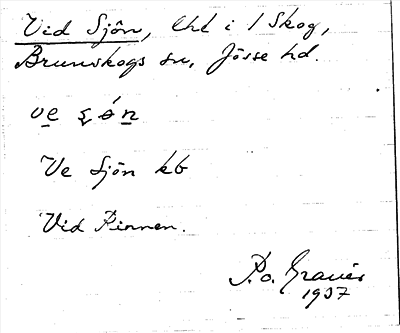 Vid Sjön, lht i / Skog,
Brunskogs sn, Jösse hd.
ve ʂón
Ve Sjön kb
Vid Rinnen.
P.o. Graner
1937